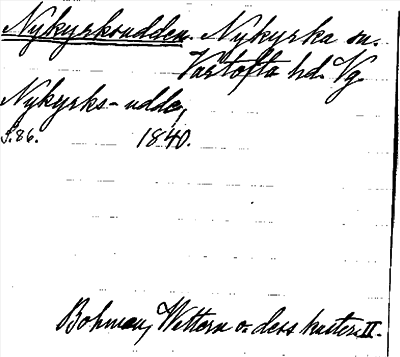 Nykyrksudden. Nykyrka sn.
Vartofta hd. Vg
Nykyrks-udde,
s. 86. 1840.
Bohman, Wettern o. dess kuster. II.